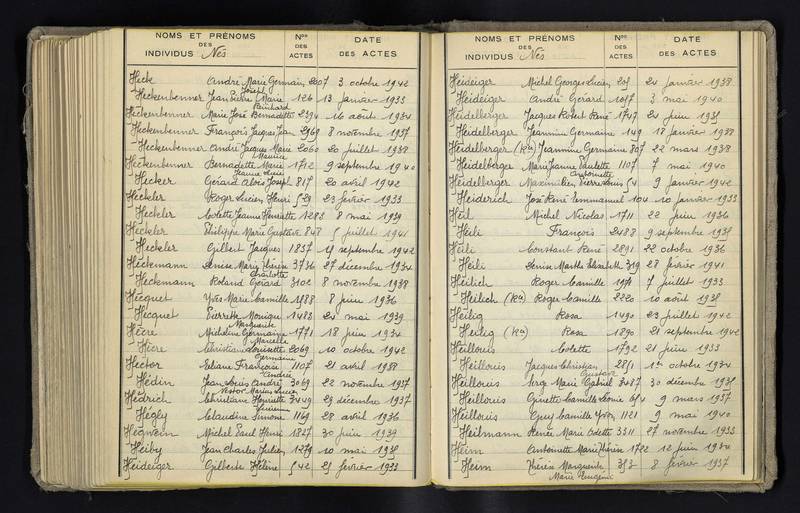 NOMS ET PRÉNOMS DES INDIVIDUS Nés
Nos DES ACTES
DATE DES ACTES
Heck André Marie Germain 2007 3 octobre 1942
Heckenbenner Jean Pierre Marie Joseph 126 13 janvier 1933
Heckenbenner Marie José Bernadette 2394 16 août 1934
Heckenbenner François Jacques Jean 2969 8 novembre 1937
Heckenbenner André Jacques Marie 2060 20 juillet 1938
Heckenbenner Bernadette Marie 1712 9 septembre 1940
Hecker Gérard Aloïs Joseph 817 20 avril 1942
Heckler Roger Lucien Henri 529 23 février 1933
Heckler Colette Jeanne Henriette 1283 8 mai 1939
Heckler Philippe Marie Gustave 848 5 juillet 1941
Heckler Gilbert Jacques 1837 19 septembre 1942
Heckmann Denise Marie Thérèse 3736 27 décembre 1934
Charlotte
Heckmann Roland Gérard 3102 8 novembre 1938
Hecquet Yves Marie Camille 1488 8 juin 1936
Hecquet Pierrette Monique 1483 24 mai 1939
Marguerite
Hecre Micheline Germaine 1771 18 juin 1934
Marcelle
Hecre Christiane Louisette 2069 10 octobre 1942
Germaine
Hector Eliane Françoise 1107 21 avril 1938
Andrée
Hédin Jean Louis André 3069 22 novembre 1937
Hedrich Christiane Henriette 3449 29 décembre 1937
Lucienne
Hégly Claudine Simone 1169 28 avril 1936
Heigwein Michel Paul Henri 1827 30 juin 1939
Heiby Jean Charles Julien 1279 10 mai 1938
Heideiger Gilberte Hélène 542 25 février 1933
NOMS ET PRÉNOMS DES INDIVIDUS Nés
Nos DES ACTES
DATE DES ACTES
Heideiger Michel Georges Lucien 209 24 janvier 1938
Heideiger André Gérard 1017 3 mai 1940
Heidelberger Jacques Robert René 1747 21 juin 1935
Heidelberger Jeannine Germaine 149 18 janvier 1938
Heidelberger (Ra) Jeannine Germaine 807 22 mars 1938
Heidelberger Marie Jeanne Paulette 1107 7 mai 1940
Antoinette
Heidelberger Maximilien Pierre Louis 54 9 janvier 1942
Heiderich José René Emmanuel 104 10 janvier 1933
Heil Michel Nicolas 1711 22 juin 1936
Heili François 2488 9 septembre 1938
Heili Constant René 2891 22 octobre 1936
Heili Denise Marthe Elisabeth 319 28 février 1941
Heilich Roger Camille 1971 7 juillet 1933
Heilich (Ra) Roger Camille 2220 10 août 1938
Heilig Rosa 1490 23 juillet 1942
Heilig (Ra) Rosa 1890 21 septembre 1942
Heillouis Colette 1792 21 juin 1933
Heillouis Jacques Christian 2851 1er octobre 1934
Gustave
Heillouis Serge Marie Gabriel 3487 30 décembre 1935
Heillouis Ginette Camille Léonie 654 9 mars 1937
Heillouis Guy Camille Yvon 1121 9 mai 1940
Heilmann Renée Marie Odette 3311 27 novembre 1933
Heim Antoinette Marie Thérèse 1722 12 juin 1934
Heim Thérèse Marguerite 353 8 février 1937
Marie Eugénie